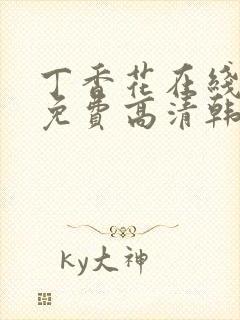 丁香花在綫
免費高清韩
ky大神